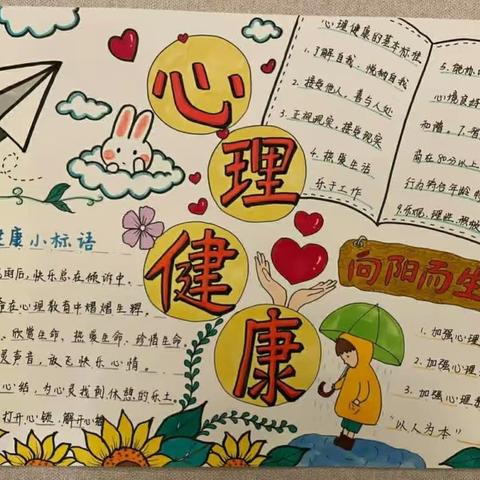 心理健康
心理健康的基本标准
1.了解自我、悦纳自我
2.接受他人,善与人处
3.正视现实,接受现实
4.热爱生活
乐于工作
5.能协
心境良好
和谐。7.
商在80分以上
行为符合年龄
9.乐观、理性、积极
健康小标语
雨后,快乐总在倾诉中。
在心理教育中熠熠生辉。
欣赏生命、热爱生命、珍惜生命
声音,放飞快乐心情。
心结,为心灵找到休憩的乐土。
打开心锁,解开心结
向阳而生
1.加强心理
2.加强心理
3.加强心理
“以人为本”